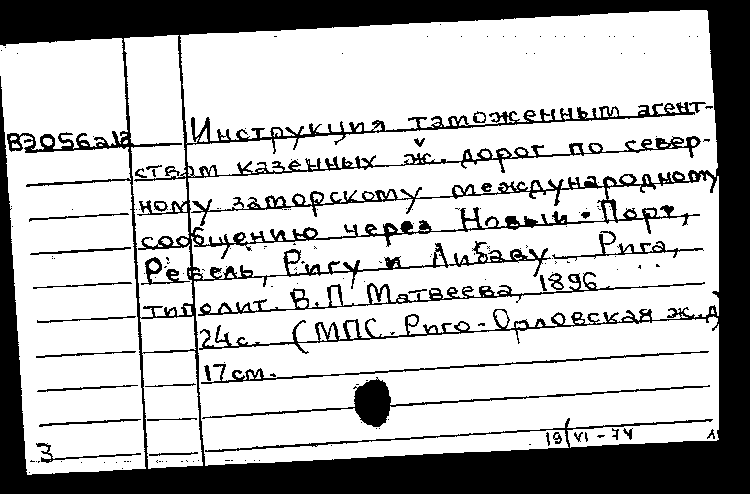 ВЭ056а12 Инструкция таможенным агент-
ствам казенных ж. дорог по север-
ному заморскому международному
сообщению через Новый-Порт,
Ревель, Ригу и Либаву. Рига,
типолит. В.П. Матвеева, 1896.
24с. (МПС. Риго-Орловская ж.д)
17см.
3
19/VI-74